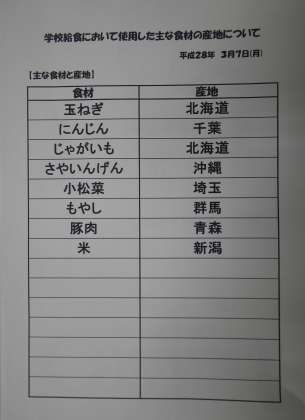 学校給食において使用した主な食材の産地について
平成28年 3月7日(月)
【主な食材と産地】
食材 産地
玉ねぎ 北海道
にんじん 千葉
じゃがいも 北海道
さやいんげん 沖縄
小松菜 埼玉
もやし 群馬
豚肉 青森
米 新潟